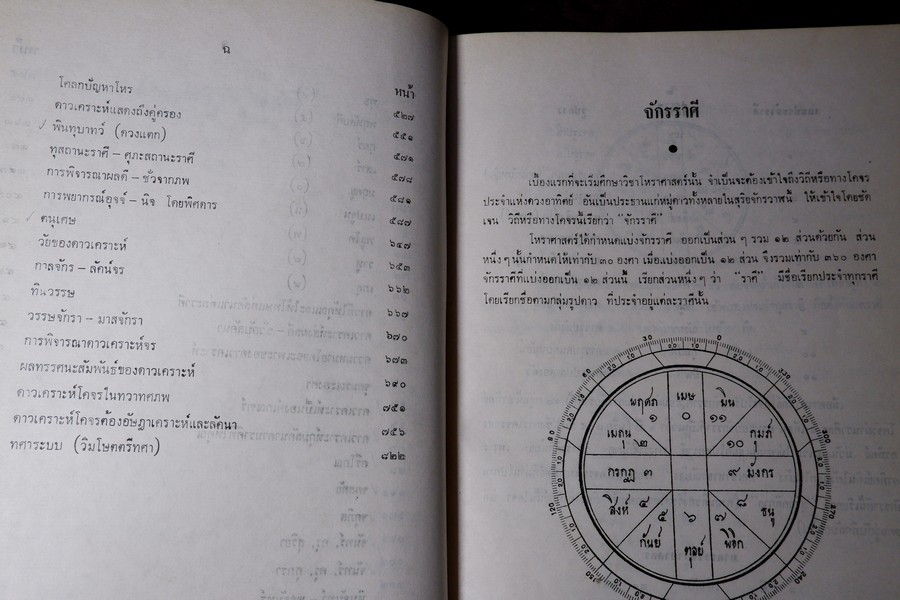 ฉ
หน้า
โคลกปัญหาโหร ๕๒๗
ดาวเคราะห์แสดงถึงคู่ครอง ๕๕๑
พินทุบาทว์ (ดวงแตก) ๕๗๑
ทุสถานะราศี – ศุภะสถานะราศี ๕๗๘
การพิจารณาผลดี – ชั่วจากภพ ๕๘๑
การพยากรณ์อุจจ์ – นิจ โดยพิศดาร ๕๘๗
ตนุเศษ ๖๔๗
วัยของดาวเคราะห์ ๖๕๓
กาลจักร – ลัคน์จร ๖๖๒
ทินวรรษ ๖๖๗
วรรษจักรา – มาสจักรา ๖๗๐
การพิจารณาดาวเคราะห์จร ๖๗๓
ผลทรรศนะสัมพันธ์ของดาวเคราะห์ ๖๙๐
ดาวเคราะห์โคจรในทวาทศภพ ๗๕๑
ดาวเคราะห์โคจรต้องอัษฎาเคราะห์และลัคนา ๗๕๖
ทศาระบบ (วิมโษตตรีทศา) ๘๒๒
จักรราศี
เบื้องแรกที่จะเริ่มศึกษาวิชาโหราศาสตร์นั้น จำเป็นจะต้องเข้าใจถึงวิถีหรือทางโคจร
ประจำแห่งดวงอาทิตย์ อันเป็นประธานแก่หมู่ดาวทั้งหลายในสุริยจักรวาฬนี้ ให้เข้าใจโดยชัด
เจน วิถีหรือทางโคจรนี้เรียกว่า "จักรราศี"
โหราศาสตร์ได้กำหนดแบ่งจักรราศี ออกเป็นส่วน ๆ รวม ๑๒ ส่วนด้วยกัน ส่วน
หนึ่ง ๆ นั้นกำหนดให้เท่ากับ ๓๐ องศา เมื่อแบ่งออกเป็น ๑๒ ส่วน จึงรวมเท่ากับ ๓๖๐ องศา
จักรราศีที่แบ่งออกเป็น ๑๒ ส่วนนี้ เรียกส่วนหนึ่ง ๆ ว่า "ราศี" มีชื่อเรียกประจำทุกราศี
โดยเรียกชื่อตามกลุ่มรูปดาว ที่ประจำอยู่แต่ละราศีนั้น
30 0 330
พฤศภ เมษ มีน
๑ ๐ ๑๑
เมถุน ๒ ๑๐ กุมภ์
กรกฎ ๓ ๙ มังกร
สิงห์ ๔ ๘ ธนู
๕ ๖ ๗
กันย์ ตุลย์ พิจิก
120 270